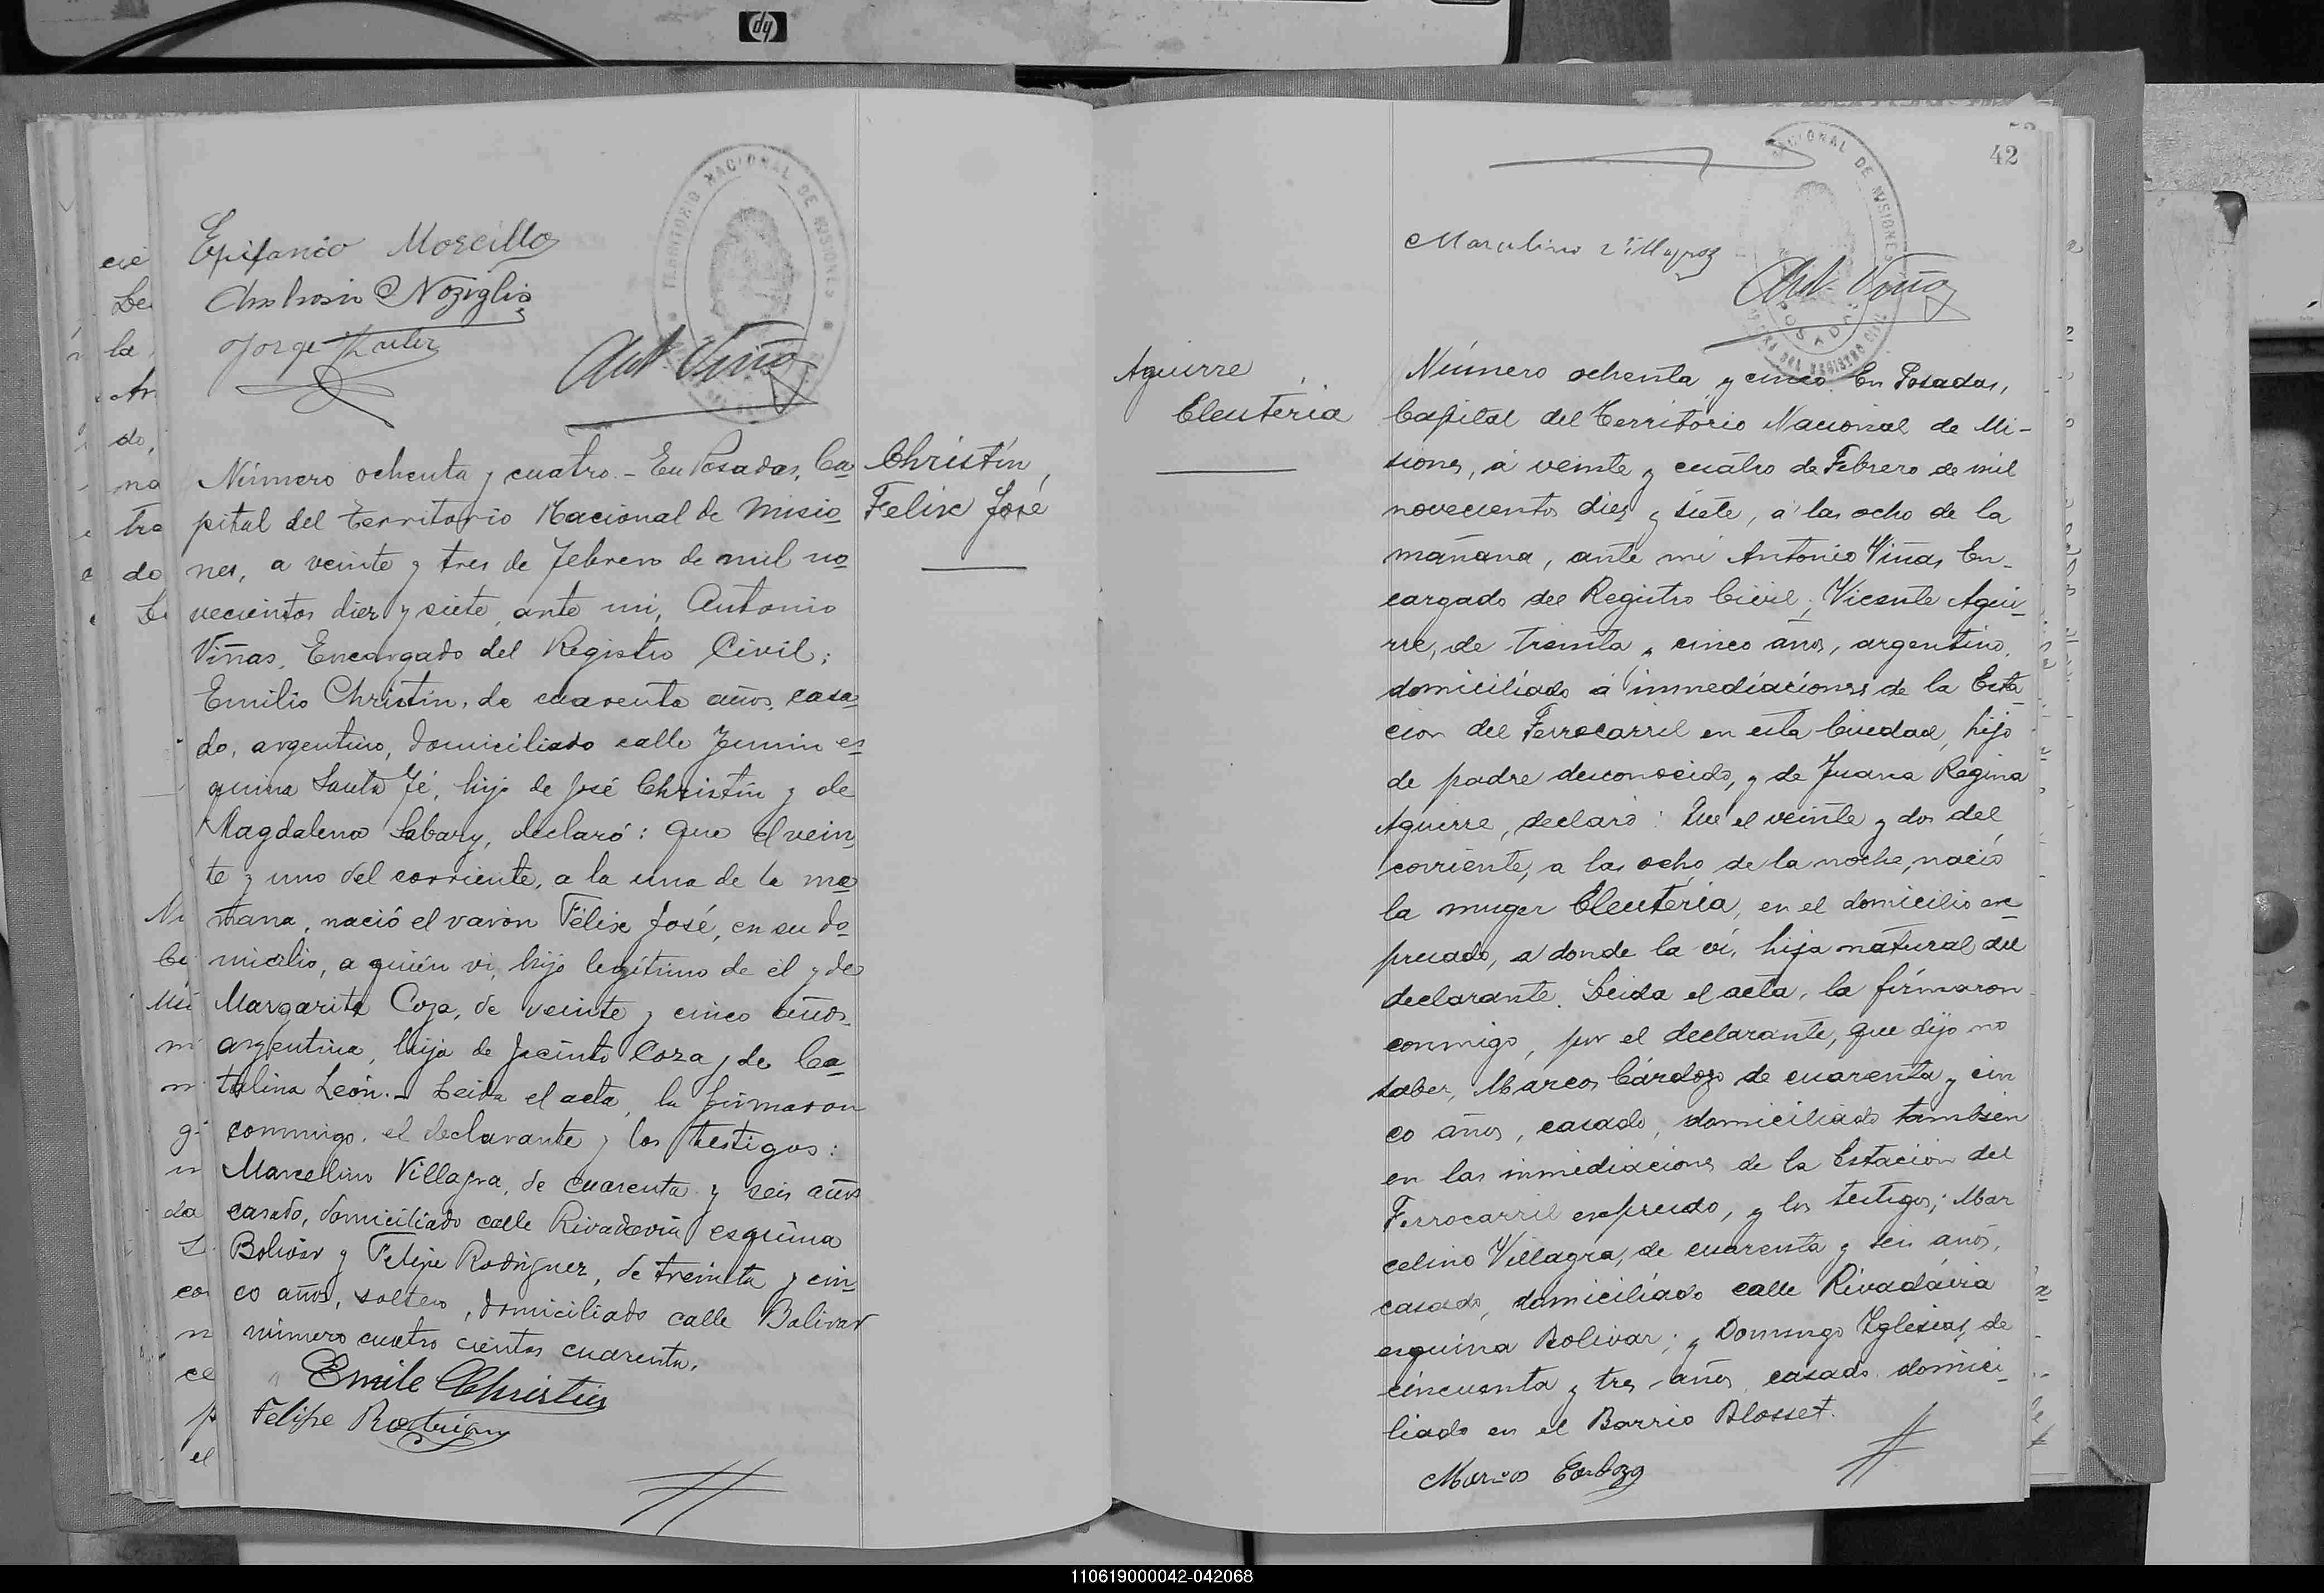 hp
TERRITORIO NACIONAL DE MISIONES
Epifanio Morcillo
Ambrosio Noziglia
Jorge
Ant Viñas
Número ochenta y cuatro.- En Posadas, Ca
pital del Territorio Nacional de Misio
nes, a veinte y tres de Febrero de mil no
vecientos diez y siete, ante mi, Antonio
Viñas, Encargado del Registro Civil;
Emilio Christin, de cuarenta años, casa
do, argentino, domiciliado calle Junin es
quina Santa Fé, hijo de José Christin y de
Magdalena Labary, declaró: Que el vein
te y uno del corriente, a la una de la ma
ñana, nació el varón Félix José, en su do
micilio, a quién vi, hijo legítimo de él y de
Margarita Coza, de veinte y cinco años,
argentina, hija de Jacinto Coza y de Ca
talina León.- Leida el acta, la firmaron
conmigo, el declarante y los testigos:
Marcelino Villagra, de cuarenta y seis años
casado, domiciliado calle Rivadavia esquina
Bolivar y Felipe Rodriguez, de treinta y cin
co años, soltero, domiciliado calle Bolivar
número cuatro cientos cuarenta.
Emile Christin
Felipe Rodriguez
Christin,
Felix José
42
NACIONAL DE MISIONES
POSADAS
DEL REGISTRO CIVIL
Marcelino Villagra
Ant. Viñas
Aguirre,
Eleuteria
Número ochenta y cinco. En Posadas,
Capital del Territorio Nacional de Mi-
siones, á veinte y cuatro de Febrero de mil
novecientos diez y siete, á las ocho de la
mañana, ante mi Antonio Viñas, En-
cargado del Registro Civil; Vicente Agui-
rre, de treinta y cinco años, argentino,
domiciliado á inmediaciones de la Esta
cion del Ferrocarril en esta Ciudad, hijo
de padre desconocido, y de Juana Regina
Aguirre, declaró: Que el veinte y dos del
corriente, a las ocho de la noche, nació
la muger Eleuteria, en el domicilio ex
presado, a donde la ví, hija natural del
declarante. Leida el acta, la firmaron
conmigo, por el declarante, que dijo no
saber, Marcos Cárdozo de cuarenta y cin
co años, casado, domiciliado tambien
en las inmediaciones de la Estación del
Ferrocarril expresado, y los testigos; Mar
celino Villagra, de cuarenta y seis años,
casado, domiciliado calle Rivadavia
esquina Bolivar; y Domingo Yglesias, de
cincuenta y tres años, casado, domici
liado en el Barrio Blosset.
Marcos Cardozo
110619000042-042068